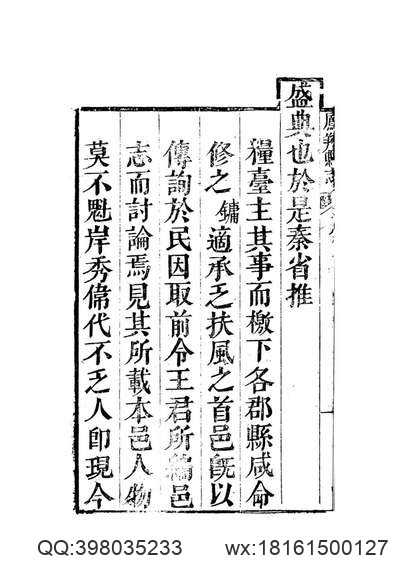 盛典也於是秦省推
糧臺主其事而檄下各郡縣咸命
修之鏞適承乏扶風之首邑既以
傳詢於民因取前令王君所 邑
志而討論焉見其所載本邑人物
莫不魁岸秀偉代不乏人即現今
QQ:398035233 wx:18161500127